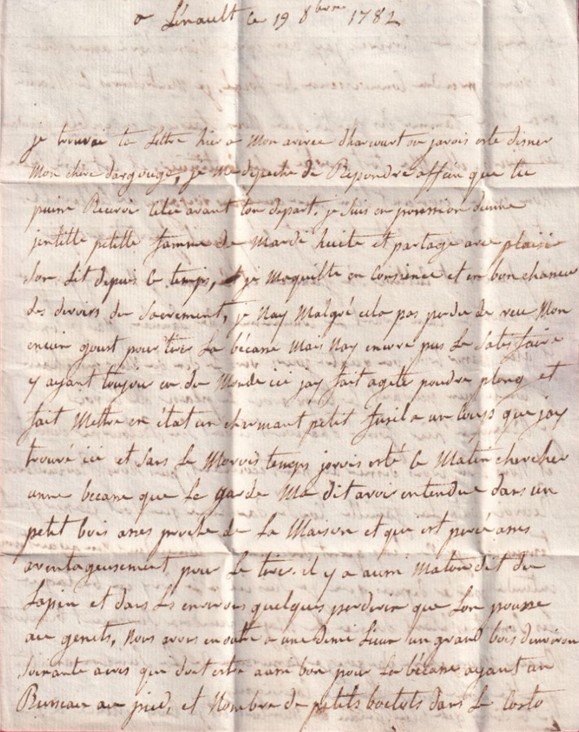 a Lénault ce 19 8bre 1782
je trouvai ta Lettre hier a Mon arivee dharcourt ou javois esté disner
Mon chere dargouge, je me depeche de Repondre affin que tu
puisse Recevoir celle cy avant ton depart. je suis en possession dunne
jentille petitte famme de Mardi huite et partage avec plaisir
son Lit depuis ce temps, je Maquitte en consience et en bon chanteur
des devoirs du sacrement, je Nay Malgré cela pas perdu de veu Mon
encien goust pour tirer La bécasse Mais Nay encore pus Le satisfaire
y ayant toujou eu du Monde ici jay fait agette poudre plong et
fait Mettre en état un charmant petit fusil a un coups que jay
trouvé ici et sans Le Movois temps jorois esté ce Matin chercher
unne becasse que Le garde Ma dit avoir entendue dans un
petit bois asses proche de La Maison et qui est percé asses
aventageusement pour Le tire. il y a aussi Matil dit du
Lapin et dans les environs quelques perdreux que Lon pousse
au genets, Nous avons en outre a une demi Lieue un grand bois denviron
soixante acres qui doit estre aussi bon pour La bécasse ayant un
Ruisseau au pied, et Nombre de petits boctots dans Le costo